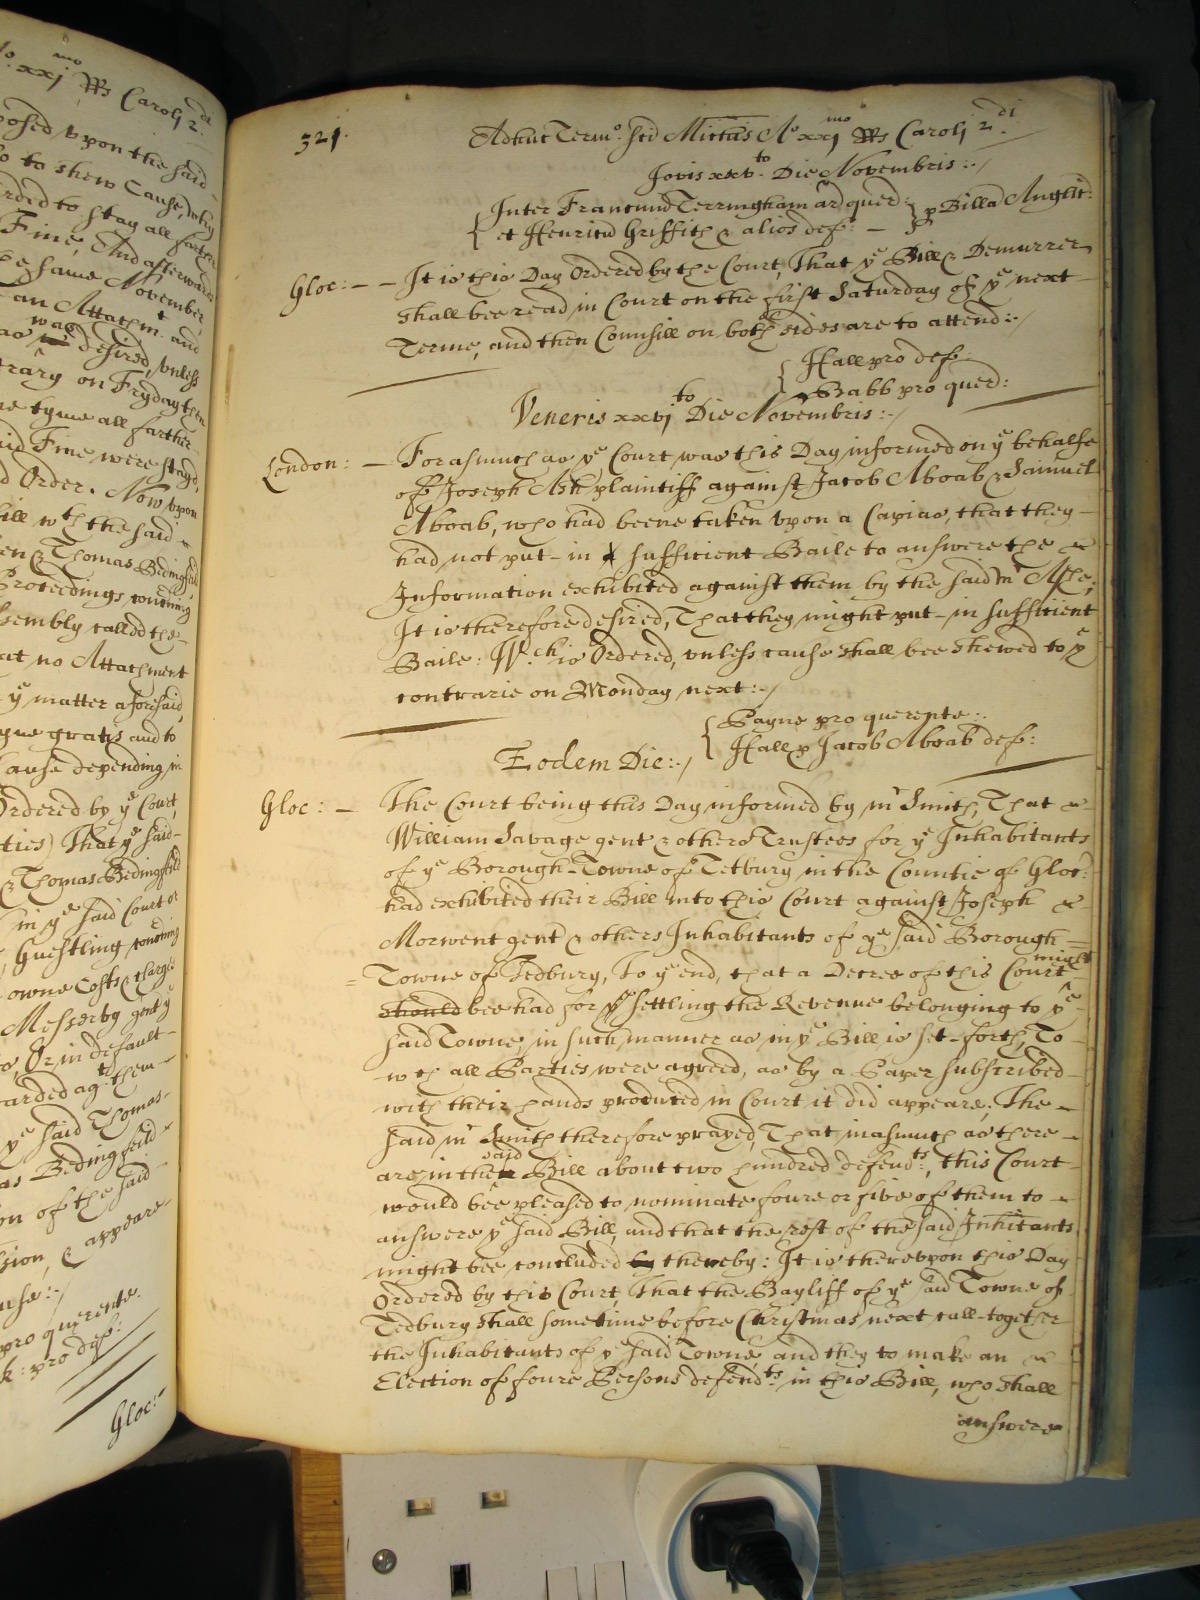 lo. xxj mo Rs Caroli 2 di
posed vpon the said
o to shew Cause, why
rded to stay all farther
Fine, And afterwards
he same November,
an Attachm.t and
was
desired, vnless
rary on Fryday then
me tyme all farther
id Fine were stayd,
d Order. Now vpon
ill wth the said
en & Thomas Bedingfeild
Proceedings touching
sembly called the
at no Attachment
ye matter aforesaid,
gne gratis and to
ause depending in
Ordered by ye Court,
ties) That ye said
& Thomas Bedingfeild
in ye said Court or
Guestling touching
owne Costs & charges
Messerby gent ye
Or in default
arded agt them
ye said Thomas
as Bedingfeild
on of the said
sion, & appeare
use:
pro querente.
k: pro def:
Gloc:
321.
Adhuc Termo. Sti Mictis Ao xxj mo Rs Caroli 2 di.
Jovis xxv to Die Novembris:
Inter Francum Terringham ar quer: p Billa Anglic:
et Henricu Griffith & alios def:
Gloc: It is this Day Ordered by the Court, That ye Bill & Demurrer
shall bee read in Court on the first Saturday of ye next
Terme, and then Counsill on both sides are to attend:
Hall pro def:
Babb pro quer:
Veneris xxvj to Die Novembris:
London: Forasmuch as ye Court was this Day informed on ye behalfe
of Joseph Ash plaintiff against Jacob Aboab & Samuel
Aboab, who had beene taken vpon a Capias, that they
had not put-in sufficient Baile to answere the
Information exhibited against them by the said mr Ashe;
It is therefore desired, That they might put-in sufficient
Baile: Wch is Ordered, vnless cause shall bee shewed to ye
contrarie on Monday next:
Payne pro querente:
Hall p Jacob Aboab def:
Eodem Die:
Gloc: The Court being this Day informed by mr Smith, That
William Savage gent & others Trustees for ye Inhabitants
of ye Borough-Towne of Tetbury in the Countie of Gloc:
had exhibited their Bill into this Court against Joseph
Morwent gent & others Inhabitants of ye said Borough
Towne of Tedbury, To ye end, that a Decree of this Court might
should bee had for ye settling the Revenue belonging to ye
said Towne, in such manner as in ye Bill is set-forth, To
wch all Parties were agreed, as by a Paper subscribed
with their hands produced in Court it did appeare; The
said mr Smith therefore prayed, That inasmuch as there
are in the said Bill about two hundred defendts, this Court
would bee pleased to nominate foure or five of them to
answere ye said Bill, and that the rest of the said Inhitants
might bee concluded by thereby: It is therevpon this Day
Ordered by this Court, That the Bayliff of ye said Towne of
Tedbury shall sometime before Christmas next call-together
the Inhabitants of ye said Towne, and they to make an
Election of foure Persons defendts in this Bill, who shall
answere